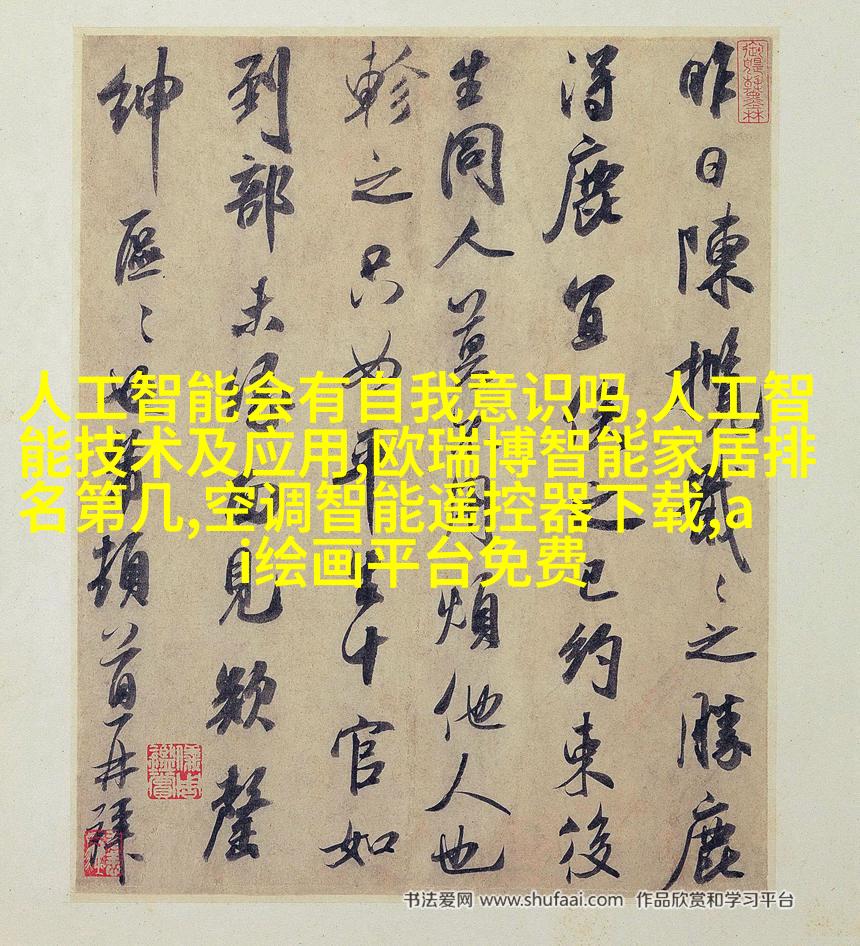 昨日陳攪〻之勝鹿
得鹿宜之已約束後
生同人莫煩他人也
軫之只如平生十官如
到部未見款罄
紳區〻也芾頓首再拜
人工智能会有自我意识吗,人工智
能技术及应用,欧瑞博智能家居排
名第几,空调智能遥控器下载,a
i绘画平台免费
书法爱网 www.shufaai.com 作品欣赏和学习平台